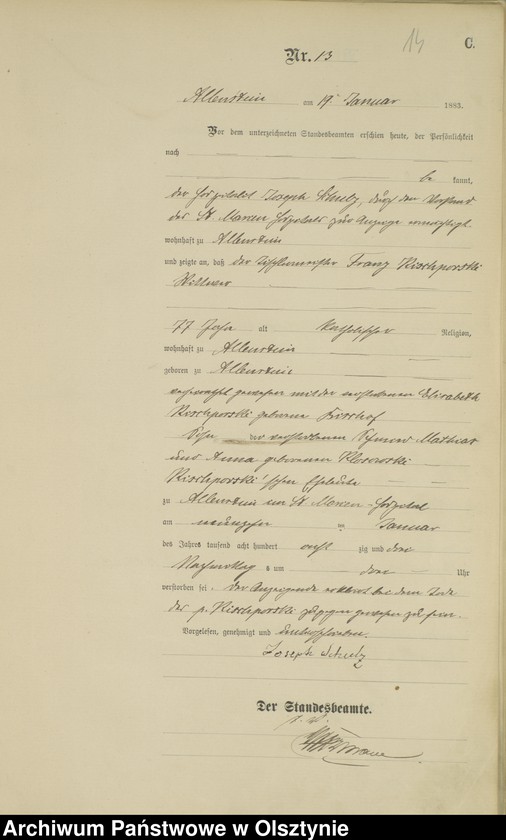 14
C.
Nr. 13
Allenstein am 19. Januar 1883.
Vor dem unterzeichneten Standesbeamten erschien heute, der Persönlichkeit
nach
be kannt,
der Hospitalit Joseph Schulz, durch den Vorstand
des St. Marien Hospitals zur Anzeige ermächtigt
wohnhaft zu Allenstein
und zeigte an, daß der Tischlermeister Franz Kischporski
Wittwer
77 Jahr alt katholischer Religion,
wohnhaft zu Allenstein
geboren zu Allenstein
verheirathet gewesen mit der verstorbenen Elisabeth
Kischporski geborene Bischof
Sohn der verstorbenen Mathias
und Anna geborenen Klosowski
Kischporski'schen Eheleute
zu Allenstein im St. Marien-Hospital
am neunzehn ten Januar
des Jahres tausend acht hundert acht zig und drei
Nachmittag s um drei Uhr
verstorben sei, der Anzeigende erklärt bei dem Tode
des p. Kischporski zugegen gewesen zu sein.
Vorgelesen, genehmigt und unterschrieben.
Joseph Schulz
Der Standesbeamte.
Archiwum Państwowe w Olsztynie